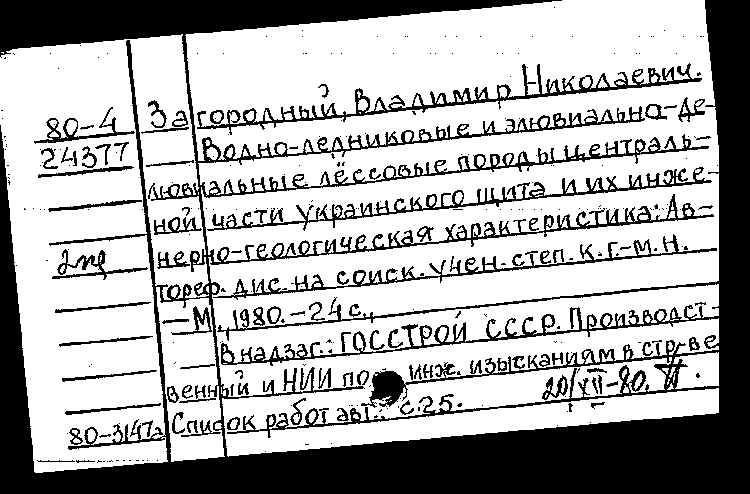 80-4 Загородный, Владимир Николаевич.
24377 Водно-ледниковые и элювиально-де-
лювиальные лёссовые породы централь-
ной части Украинского щита и их инже-
2 нерно-геологическая характеристика: Ав-
тореф. дис. на соиск. учен. степ. к. г.-м. н.
— М., 1980. — 24 с.,
В надзаг.: ГОССТРОЙ СССР. Производст-
венный и НИИ по инж. изысканиям в стр-ве
80-3147а Список работ авт.: с.25. 20/XII-80.